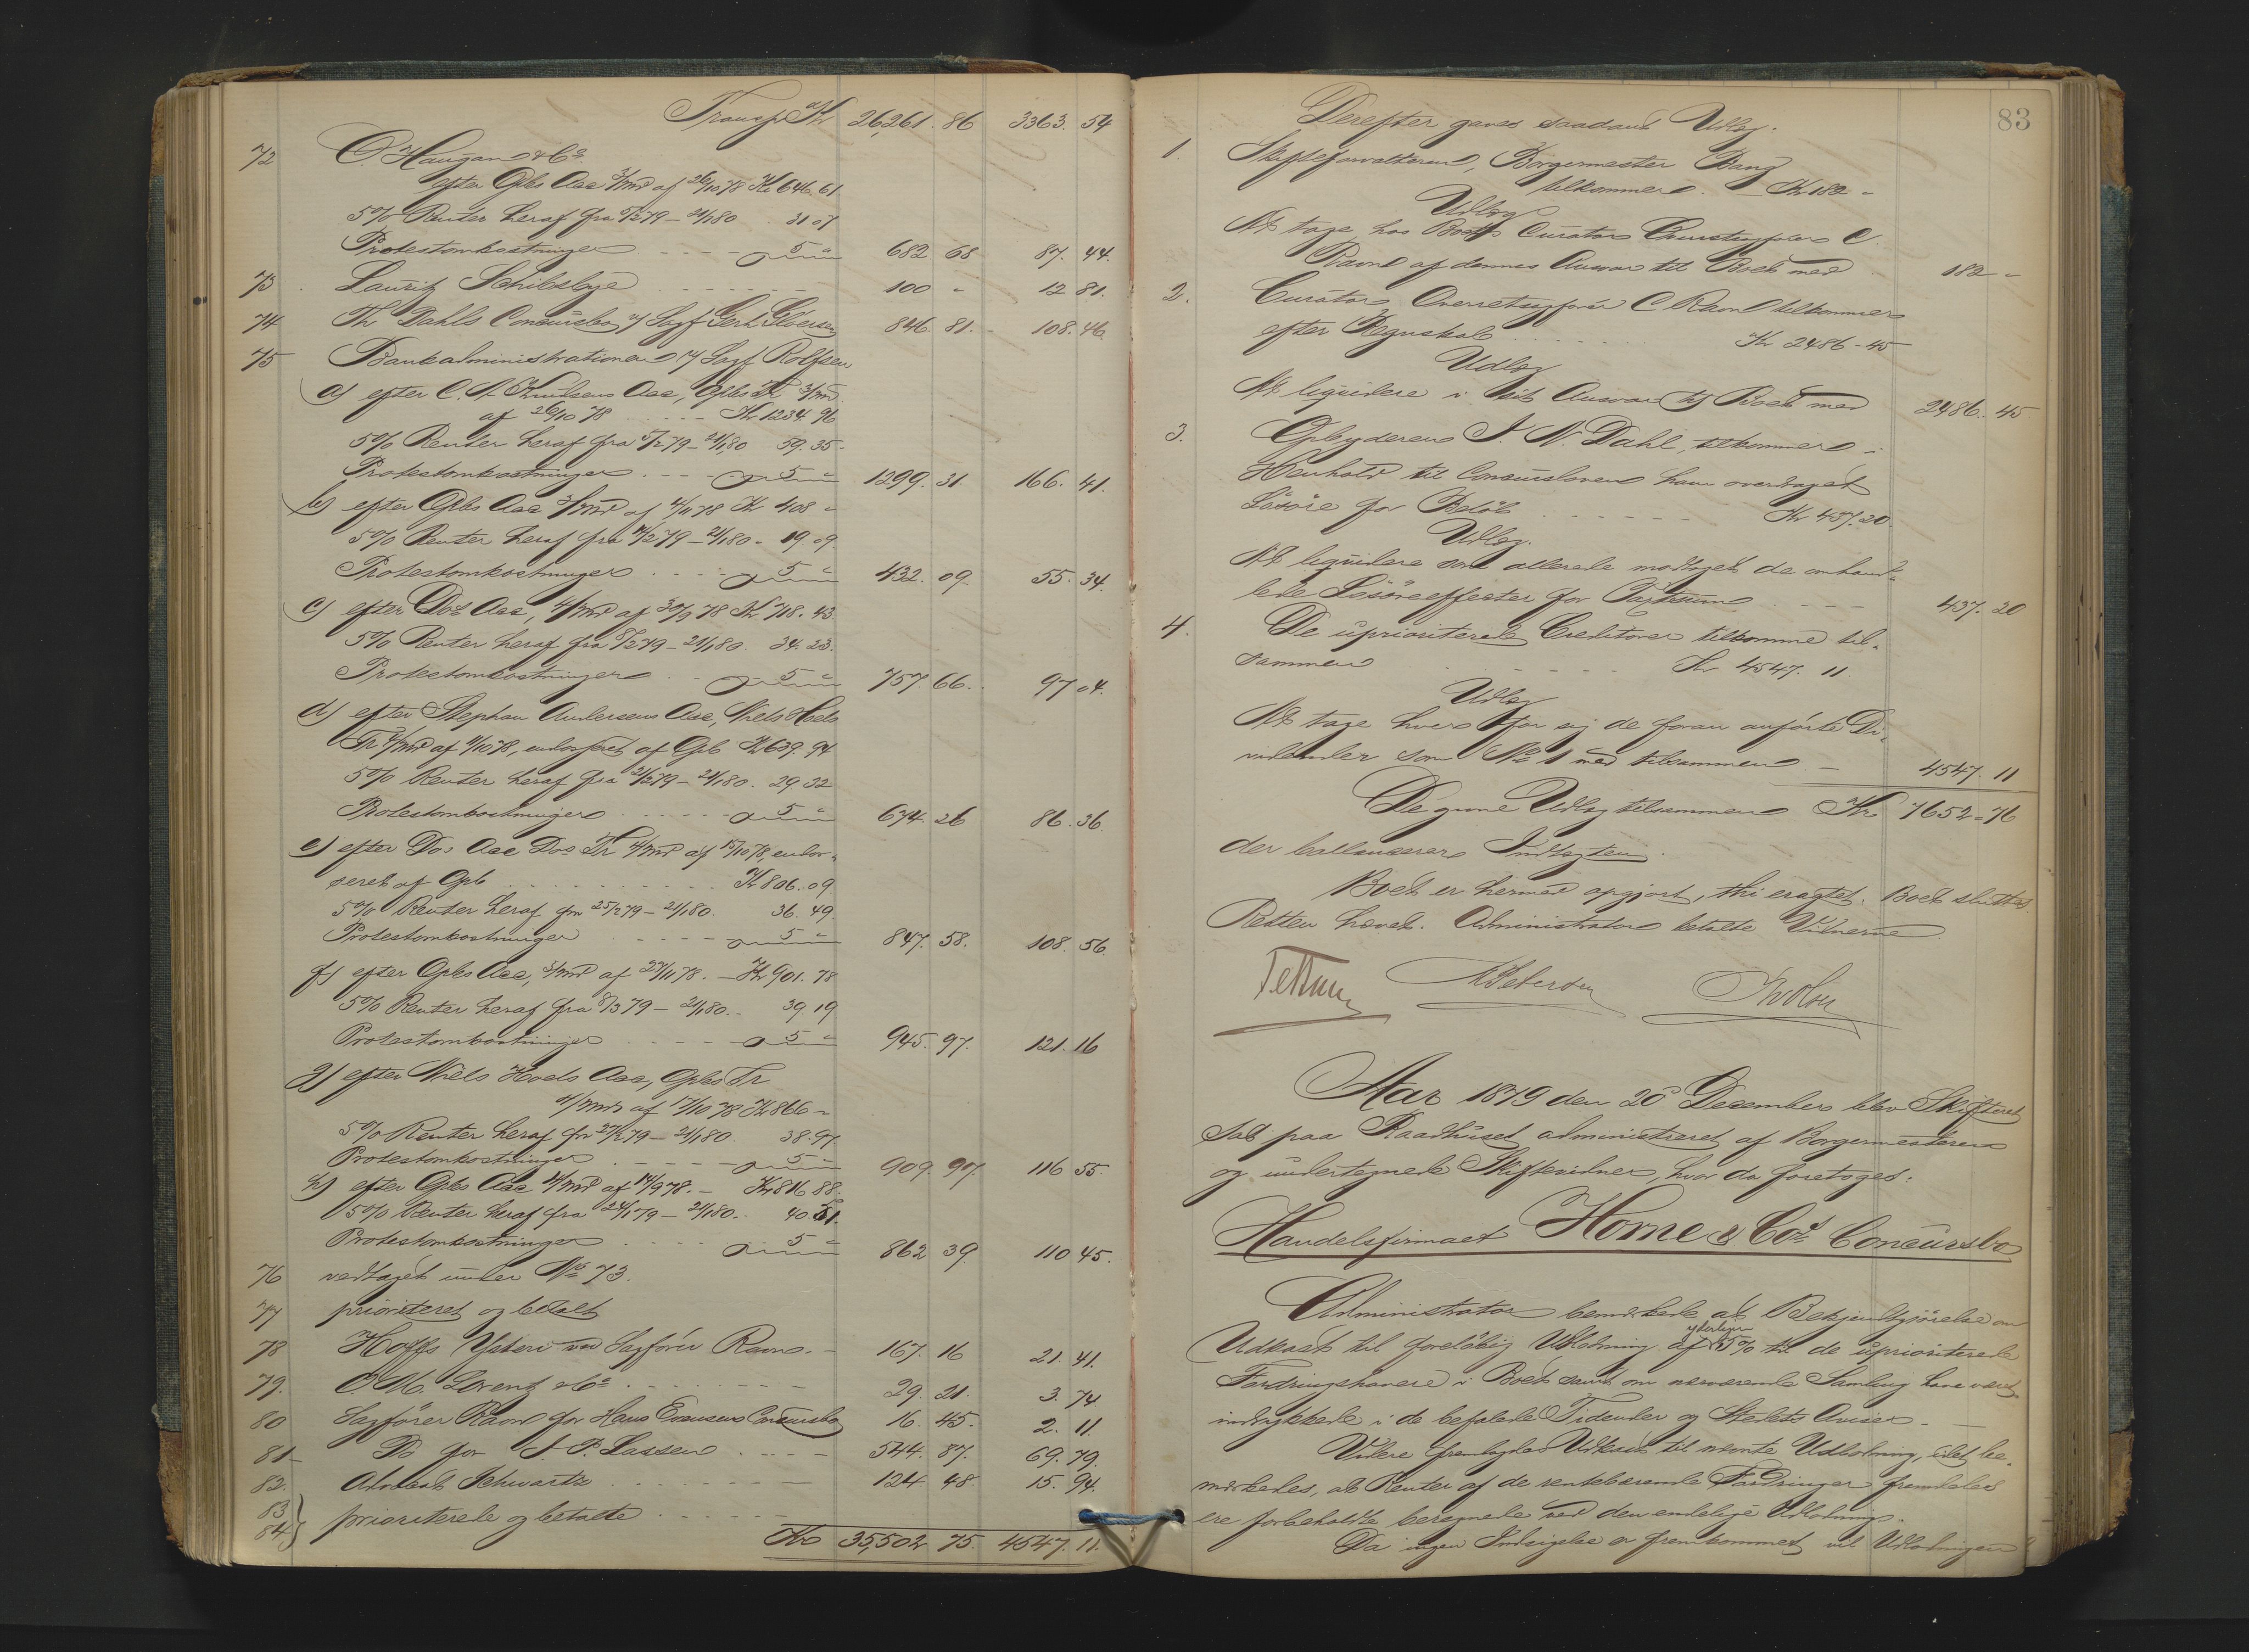 Transp. Kr 26,261. 86 3363. 54
72 O. Haugan & Co
efter Opbs Acc 3/md af 26/10 78 Kr 646. 61
5% Renter heraf fra 5/2 79 – 21/1 80 31 07
Protestomkostninger 5 " 682 68 87. 44.
73. Lauritz Schibsbye 100 " 12 81.
74 Th Dahls Concursbo v/ Sagf Gerh. Gløersen 846. 81. 108. 46
75 Bankadministrationen v/ Sagf. Rolfsen
a) efter C. A. Knudsens Acc, Opbs Tr 3/md
af 26/10 78 Kr 1234. 96
5% Renter heraf fra 5/2 79 – 21/1 80 59. 35
Protestomkostninger 5 " 1299. 31. 166. 41.
b) efter Opbs Acc 3/md af 4/11 78 Kr 408 "
5% Renter heraf fra 14/2 79 – 21/1 80 19. 09
Protestomkostninger 5 " 432. 09. 55. 34.
c) efter Dos Acc, 4/md af 30/9 78 Kr 718. 43
5% Renter heraf fra 8/2 79 – 21/1 80. 34. 23.
Protestomkostninger 5 " 757. 66. 97 04.
d) efter Stephan Andersens Acc, Niels Hoels
Tr 4/md af 11/10 78, endosseret af Opb Kr 639. 94
5% Renter heraf fra 21/2 79 – 21/1 80. 29 32
Protestomkostninger 5 " 674. 26 86. 36
e) efter Dos Acc Dos Tr 4/md af 15/10 78, endos-
seret af Opb Kr 806. 09
5% Renter heraf fra 25/2 79 – 21/1 80. 36. 49
Protestomkostninger 5 " 847. 58. 108. 56
f) efter Opbs Acc, 3/md af 27/11 78. – Kr 901. 78
5% Renter heraf fra 8/3 79 – 21/1 80. 39 19
Protestomkostninger 5 " 945. 97. 121. 16
g) efter Niels Hoels Acc, Opbs Tr
4/md af 17/10 78 Kr 866 "
5% Renter heraf fra 27/2 79 – 21/1 80 38. 97
Protestomkostninger 5 " 909. 97. 116 55
h) efter Opbs Acc 4/md af 14/9 78. – Kr 816 88
5% Renter heraf fra 24/1 79 – 21/1 80. 40. 51.
Protestomkostninger 5 " 862 39 110 45.
76 vedtaget under No 73.
77 prioriteret og betalt
78 Hoffs Ysteri ved Sagfører Ravn. 167. 16 21. 41.
79. O. M. Lorenz & Co 29. 21. 3. 74
80 Sagfører Ravn for Hans Evensens Concursbo 16. 45. 2. 11.
81 Do for J. P. Lassen 544. 87. 69. 79.
82. Advocat Schwartz 124 48 15. 94.
83
84} prioriterede og betalte
Kr 35,502 75. 4547. 11.
83
Derefter gaves saadant Udlæg.
1. Skifteforvalteren, Borgermester Bang
tilkommer. Kr 182 "
Udlæg
At tage hos Boets Curator Overretssagfører C.
Ravn af dennes Ansvar til Boet med 182 "
2. Curator, Overretssagfører C Ravn tilkommer
efter Regnskab Kr 2486 – 45
Udlæg
At liqvidere i sit Ansvar til Boet med 2486. 45
3. Opbyderen J. N. Dahl, tilkommer i
Henhold til Concursloven ham overdraget
Løsøre for Beløb Kr 437. 20
Udlæg.
At liqvidere som allerede modtaget de omhand-
lede Løsøreeffecter for Taxtsum 437. 20
4. De uprioriterede Creditorer tilkomme til-
sammen Kr 4547. 11
Udlæg
At tage hver for sig de foran anførte Di-
videnter som No 1 med tilsammen 4547. 11
De givne Udlæg tilsammen Kr 7652 – 76
der ballancerer Indtægten.
Boet er hermed opgjort, thi eragtet. Boet sluttet
Retten hævet. Administrator betalte Vidnerne
Aar 1879 den 20de December blev Skifteret
sat paa Raadhuset administreret af Borgermesteren
og undertegnede Skiftevidner, hvor da foretoges.
Handelsfirmaet Horne & Co's Concursbo
Administrator bemærkede at Bekjendtgjørelse om
Udkast til foreløbig Udlodning af yderligere 5% til de uprioriterede
Fordringshavere i Boet samt om nærværende Samling have været
indrykkede i de befalede Tidender og Stedets Aviser. –
Videre fremlagdes Udkast til nævnte Udlodning, idet be-
mærkedes, at Renter af de rentebærende Fordringer fremdeles
ere forbeholdte beregnede ved den endelige Udlodning.
Da ingen Indsigelse er fremkommet mod Udlodningen